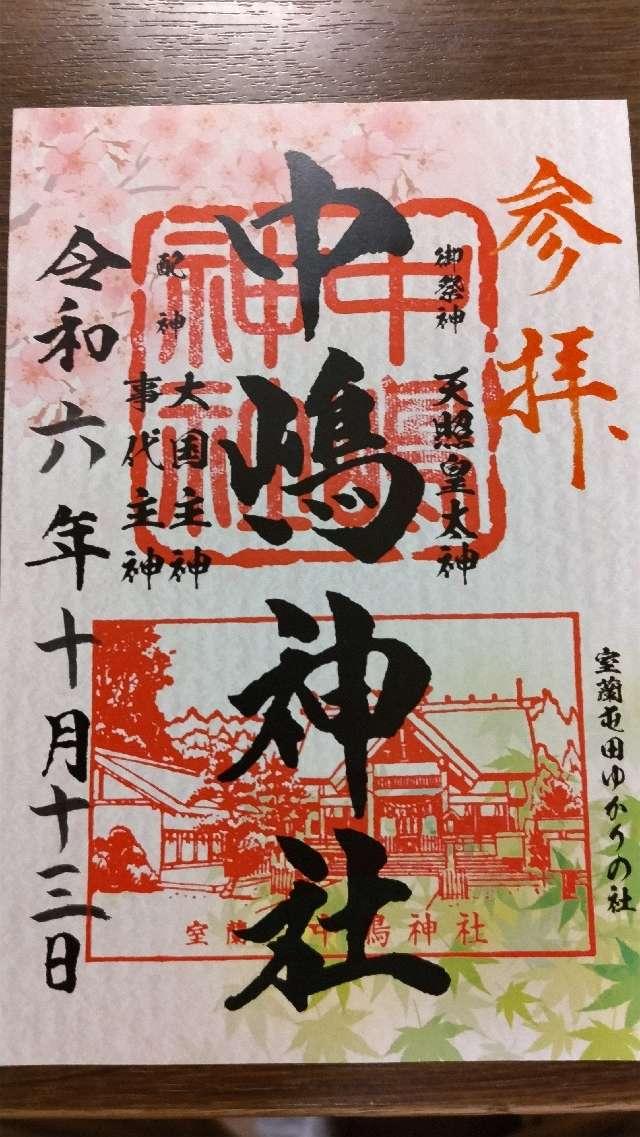 参拝
室蘭屯田ゆかりの社
御祭神 天照皇大神
中嶋神社
配神
大国主神
事代主神
令和六年十月十三日
中嶋神社
室蘭 中嶋神社